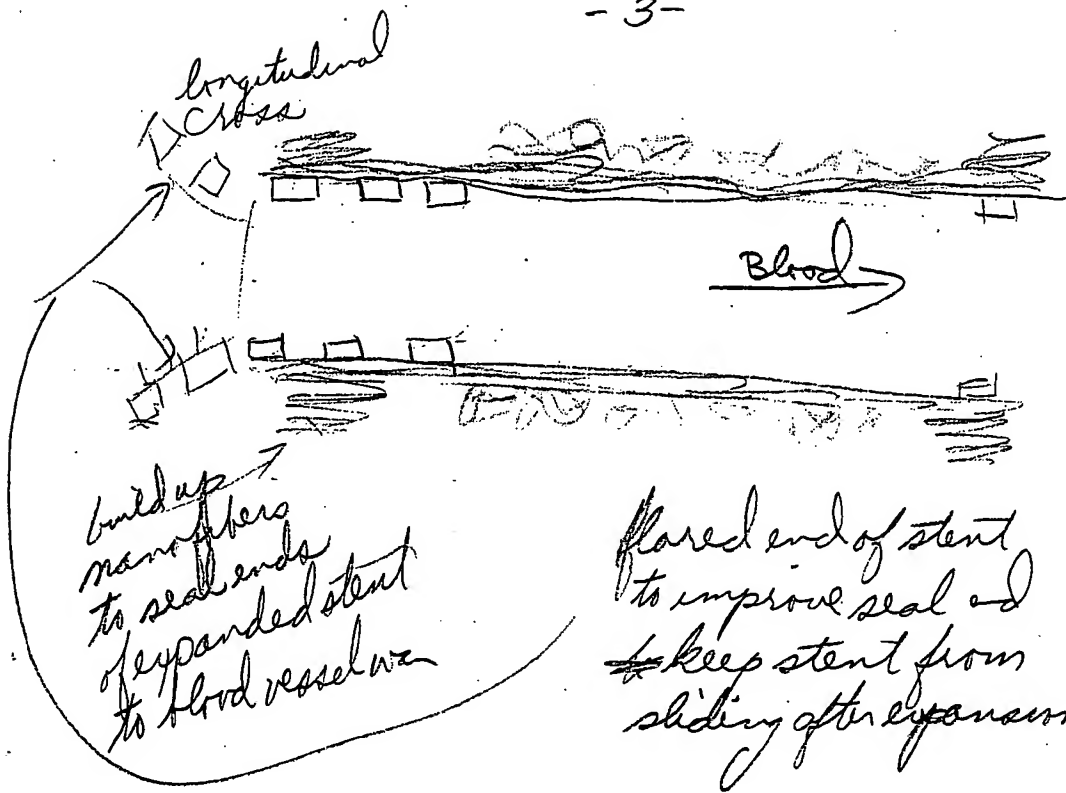 - 3-
longitudinal
cross
Blood
build up
nanofibers
to seal ends
of expanded stent
to blood vessel
flared end of stent
to improve seal and
keep stent from
sliding after expansion